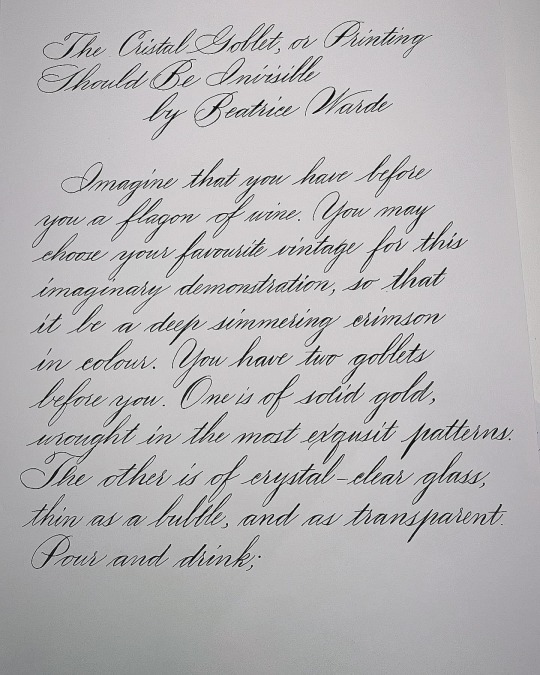 The Cristal Goblet, or Printing
Should Be Invisible
by Beatrice Warde
Imagine that you have before
you a flagon of wine. You may
choose your favourite vintage for this
imaginary demonstration, so that
it be a deep simmering crimson
in colour. You have two goblets
before you. One is of solid gold,
wrought in the most exqusit patterns.
The other is of crystal-clear glass,
thin as a bubble, and as transparent.
Pour and drink;